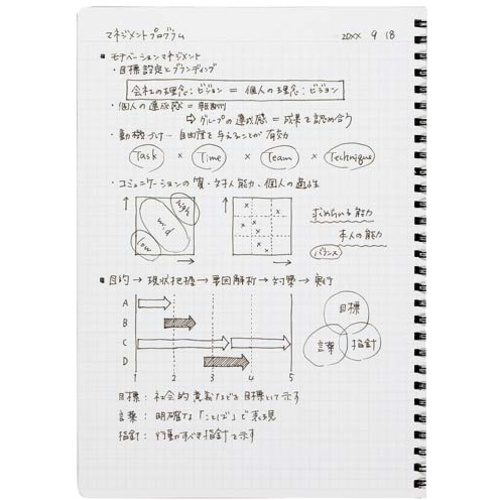 マネジメントプログラム 20XX 9 18
■ モチベーションマネジメント
・目標設定とブランディング
会社の理念:ビジョン = 個人の理念:ビジョン
・個人の達成感 =
⇨ グループの達成感 = 成果を認め合う
・動機づけ… 自由度を与えることが有効
Task × Time × Team × Technique
・コミュニケーションの質・対人能力、個人の適性
high
mid
low
求められる能力
本人の能力
バランス
■ 目的 → 現状把握 → 要因解析 → 対策 → 実行
A
B
C
D
1 2 3 4 5
目標
言葉 指針
目標: 社会的意義などを目標として示す
言葉: 明確な「ことば」で表現
指針: 行動すべき指針を示す